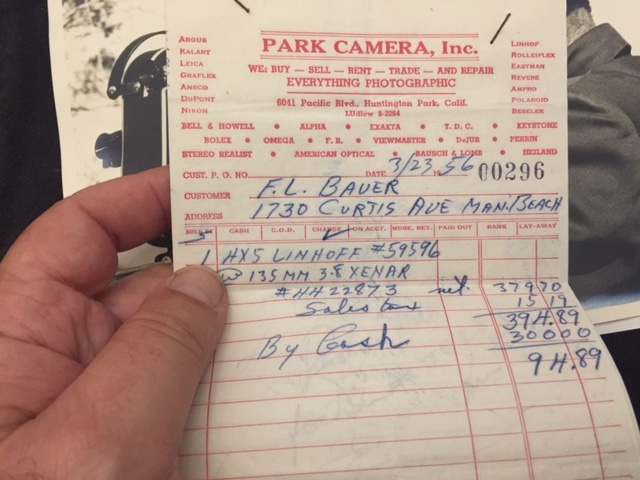 ARGUS
KALART
LEICA
GRAFLEX
ANSCO
DUPONT
NIKON
PARK CAMERA, Inc.
WE: BUY — SELL — RENT — TRADE — AND REPAIR
EVERYTHING PHOTOGRAPHIC
6041 Pacific Blvd., Huntington Park, Calif.
LUdlow 8-2264
LINHOF
ROLLEIFLEX
EASTMAN
REVERE
AMPRO
POLAROID
BESELER
BELL & HOWELL • ALPHA • EXAKTA • T.D.C. • KEYSTONE
BOLEX • OMEGA • F.R. • VIEWMASTER • DEJUR • PERKIN
STEREO REALIST • AMERICAN OPTICAL • BAUSCH & LOMB • HEILAND
CUST. P. O. NO. DATE 3/23 1956 00296
CUSTOMER F.L. BAUER
ADDRESS 1730 CURTIS AVE MAN.BEACH
SOLD BY CASH C.O.D. CHARGE ON ACCT. MDSE. RET. PAID OUT BANK LAY-AWAY
1 4X5 LINHOFF #59596
W 135MM 3.8 XENAR
#HH22873 net. 37970
Sales tax 15 19
394.89
By Cash 30000
94.89